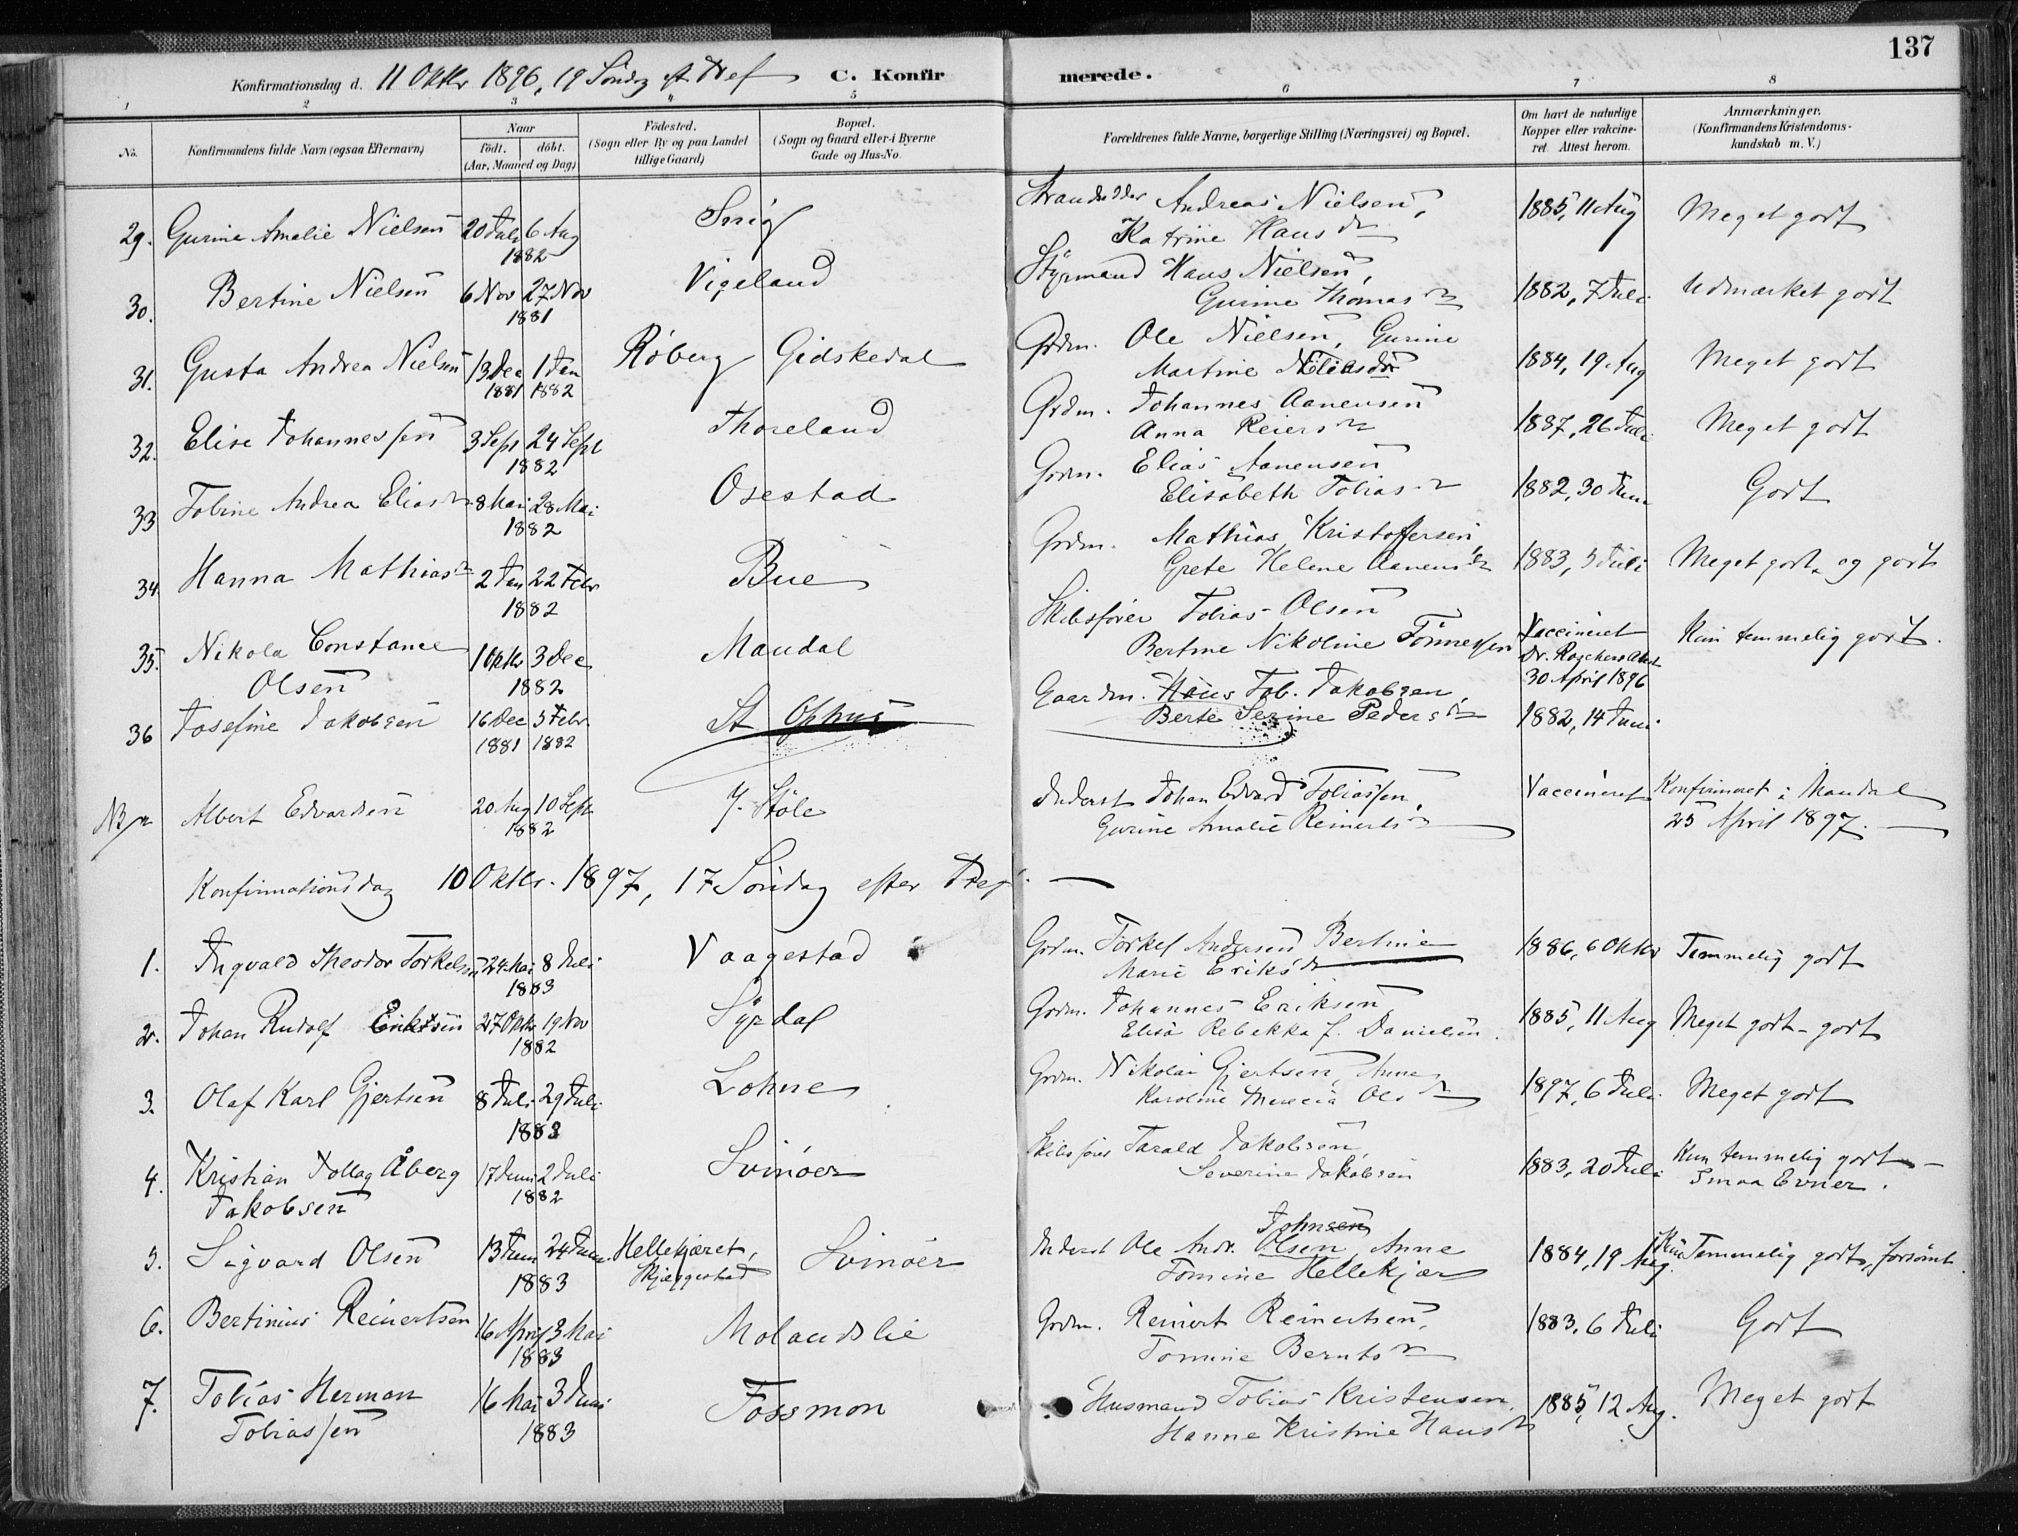 137
Konfirmationsdag d. 11 Oktbr 1896, 19 Søndag eft Tref C. Konfirmerede.
1 2 3 4 5 6 7 8
No. Konfirmandens fulde Navn (ogsaa Efternavn) Naar født. døbt. (Aar, Maaned og Dag) Fødested. (Sogn eller By og paa Landet tillige Gaard) Bopæl. (Sogn og Gaard eller i Byerne Gade og Hus-No. Forældrenes fulde Navne, borgerlige Stilling (Næringsvei) og Bopæl. Om havt de naturlige Kopper eller vakcineret. Attest herom. Anmærkninger. (Konfirmandens Kristendomskundskab m. V.)
29. Gurine Amalie Nielsen 20 Juli 6 Aug 1882 Snig Andreas Nielsen, Katrine Hansdr 1885, 11 Aug Meget godt
30. Bertine Nielsen 6 Nov 27 Nov 1881 Vigeland Styrmand Hans Nielsen, Gurine Thomasdr 1882, 7 Juli Udmærket godt
31. Gusta Andrea Nielsen 13 Dec 1881 1 Jan 1882 Røberg Gidskedal Grdm. Ole Nielsen, Gurine Martine 1884, 19 Aug Meget godt
32. Elise Johannessen 3 Sept 24 Sept 1882 Thoreland Grdm. Johannes Aanensen Anna Reiersdr 1887, 26 Juli Meget godt
33 Tobine Andrea Eliasdr 8 Mai 28 Mai 1882 Osestad Grdm. Elias Aanensen Elisabeth Tobiasdr 1882, 30 Juni Godt
34 Hanna Mathiasdr 2 Jan 22 Febr 1882 Bue Grdm. Mathias Kristoffersen Grete Helene Aanensdr 1883, 5 Juli Meget godt og godt
35. Nikola Constance Olsen 1 Oktb 3 Dec 1882 Mandal Skibsfører Tobias Olsen Bertine Nikoline Tønnessen Vaccineret Dr. 30 April 1896 Kun temmelig godt.
36 Josefine Jakobsen 16 Dec 1881 5 Febr 1882 St Ophus Gaardm. Hans Tob. Jakobsen, Berte Serine Pedersdr 1882, 14 Juni
NB Albert Edvardsen 20 Aug 10 Sept 1882 Y. Støle Inderst Johan Edvard Tobiassen, Gurine Amalie Reinertsdr Vaccineret Konfirmeret i Mandal 25 April 1897.
Konfirmationsdag 10 Oktbr. 1897, 17 Søndag efter Tref.
1. Ingvald Theodor Torkelsen 24 Mai 8 Juli 1883 Vaagestad Grdm. Torkel Andersen Bertine Marie Eriksdr 1886, 6 Oktbr Temmelig godt
2. Johan Rudolf Eriksen 27 Oktb 19 Nov 1882 Syrdal Grdm. Johannes Eriksen Elise Rebekka f. Danielsen. 1885, 11 Aug Meget godt - godt
3. Olaf Karl Gjertsen 8 Juli 29 Juli 1883 Lohne Grdm. Nikolai Gjertsen, Anne Karoline Theresia Olsdr 1897, 6 Juli Meget godt
4. Kristian Tollag Åberg Jakobsen 17 Juni 2 Juli 1882 Svinøer Skibsfører Tarald Jakobsen, Severine Jakobsen 1883, 20 Juli Kun temmelig godt - Smaa Evner.
5. Sigvard Olsen 13 Juni 24 Juni 1883 Hellekjæret, Skjæggestad Svinøer Inderst Ole Andr. Johnsen Olsen, Anne Tomine Hellekjær 1884, 19 Aug. Kun Temmelig godt, forsømt.
6. Bertinius Reinertsen 16 April 3 Mai 1883 Molandslie Grdm. Reinert Reinertsen, Tomine Berntsdr 1883, 6 Juli Godt
7. Tobias Herman Tobiassen 16 Mai 3 Juni 1883 Fossmon Husmand Tobias Kristensen, Hanne Kristine Hansdr 1885, 12 Aug. Meget godt